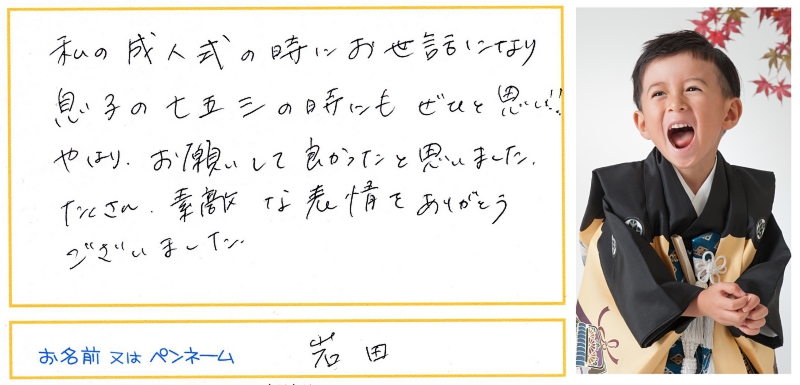 私の成人式の時にお世話になり
息子の七五三の時にもぜひと思い!!
やはり、お願いして良かったと思いました。
たくさん、素敵な表情をありがとう
ございました。
お名前 又は ペンネーム 岩田